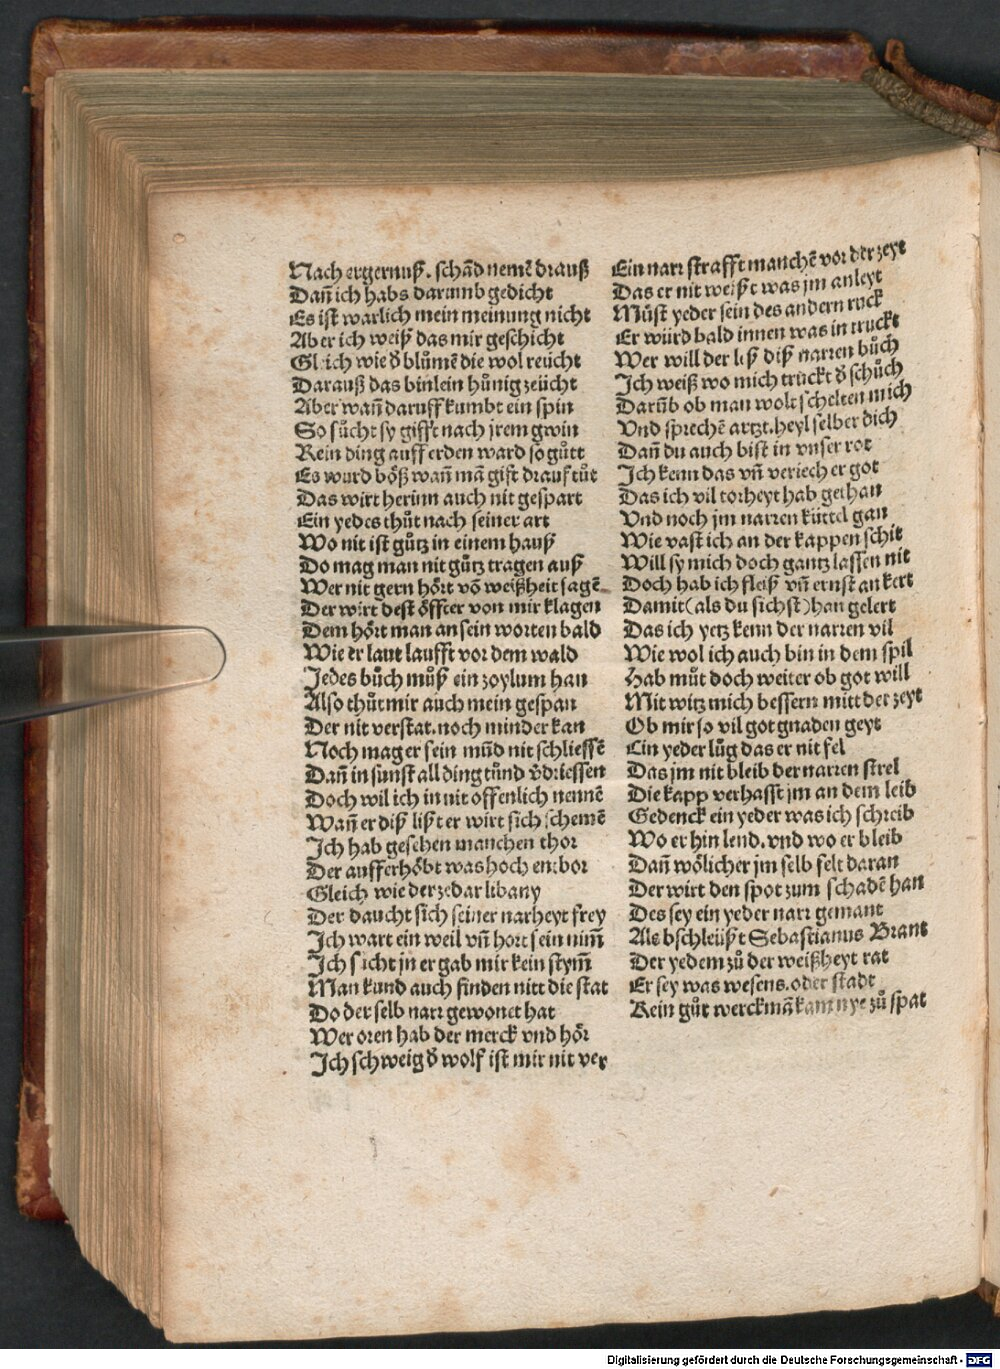 Nach ergernuß. schād nemē drauß
Dañ ich habs darumb gedicht
Es ist warlich mein meinung nicht
Aber ich weiß das mir geschicht
Glich wie d̄ blůmē die wol reücht
Darauß das binlein hůnig zeücht
Aber wañ daruff kumbt ein spin
So sůcht sy gifft nach jrem gwin
Kein ding auff erden ward so gůtt
Es wurd böß wañ mā gift drauf tůt
Das wirt herinn auch nit gespart
Ein yedes thůt nach seiner art
Wo nit ist gůtz in einem hauß
Do mag man nit gůtz tragen auß
Wer nit gern hört vō weißheit sagē
Der wirt dest öffter von mir klagen
Dem hört man an sein worten bald
Wie er laut laufft vor dem wald
Jedes bůch můß ein zoylum han
Also thůt mir auch mein gespan
Der nit verstat. noch minder kan
Noch mag er sein mūd nit schliessē
Dañ in sunst all ding tůnd v̄driessen
Doch wil ich in nit offenlich nennē
Wañ er diß lißt er wirt sich schemē
Ich hab gesehen manchen thor
Der auff erhöbt was hoch enbor
Gleich wie der zedar libany
Der daucht sich seiner narheyt frey
Ich wart ein weil vñ hort sein nim̄
Ich sicht jn er gab mir kein stym̄
Man kund auch finden nitt die stat
Do der selb narr gewonet hat
Wer oren hab der merck vnd hör
Ich schweig d̄ wolf ist mir nit ver
Ein narr strafft manchē vor der zeyt
Das er nit weißt was jm anleyt
Můst yeder sein des andern ruck
Er würd bald innen was in truckt
Wer will der liß diß narren bůch
Ich weiß wo mich truckt d̄ schůch
Darūb ob man wolt schelten mich
Vnd sprechē artzt. heyl selber dich
Dañ du auch bist in vnser rot
Ich kenn das vñ veriech er got
Das ich vil torheyt hab gethan
Vnd noch jm narren küttel gan
Wie vast ich an der kappen schit
Will sy mich doch gantz lassen nit
Doch hab ich fleiß vñ ernst an kert
Damit (als du sichst) han gelert
Das ich yetz kenn der narren vil
Wie wol ich auch bin in dem spil
Hab můt doch weiter ob got will
Mit witz mich bessern mitt der zeyt
Ob mir so vil got gnaden geyt
Ein yeder lůg das er nit fel
Das jm nit bleib der narren strel
Die kapp verhasst jm an dem leib
Gedenck ein yeder was ich schreib
Wo er hin lend. vnd wo er bleib
Dañ wölicher jm selb felt daran
Der wirt den spot zum schadē han
Des sey ein yeder narr gemant
Als bschleüßt Sebastianus Brant
Der yedem zů der weißheyt rat
Er sey was wesens. oder stadt
Kein gůt werckmā kam nye zů spat
Digitalisierung gefördert durch die Deutsche Forschungsgemeinschaft - DFG